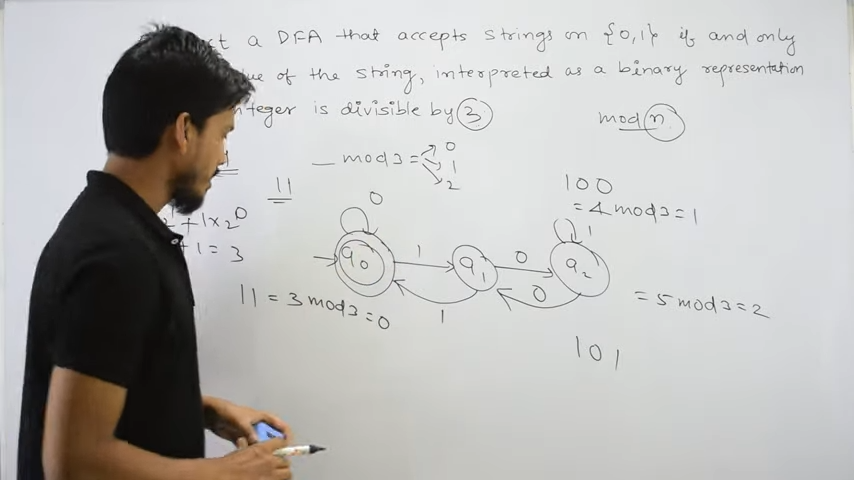 a DFA that accepts strings on {0,1} if and only
of the string, interpreted as a binary representation
integer is divisible by 3
mod n
— mod 3 = 0
1
2
11
100
= 4 mod 3 = 1
+ 1x2^0
+ 1 = 3
0
1
q0
1
q1
0
q2
11 = 3 mod 3 = 0
1
0
= 5 mod 3 = 2
101